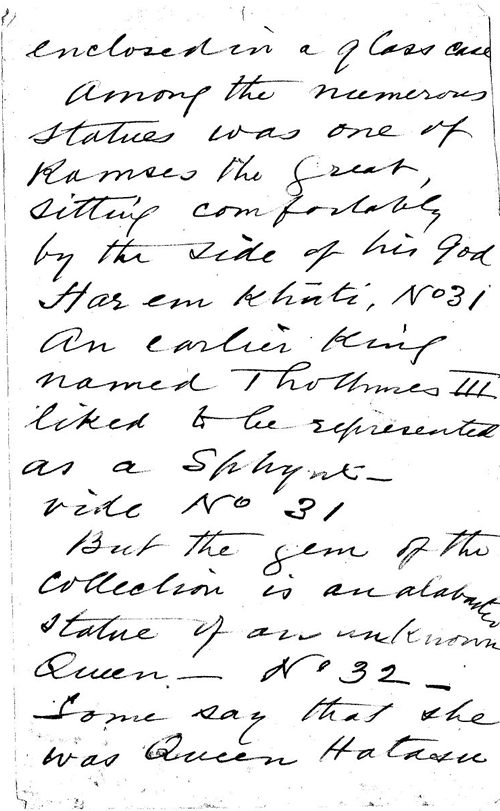 enclosed in a glass case
Among the numerous
statues was one of
Ramses the Great,
sitting comfortably
by the side of his God
Har em Khuti, No 31
An earlier King
named Thothmes III
liked to be represented
as a Sphynx —
vide No 31
But the gem of the
Collection is an alabaster
statue of an unknown
Queen — No 32 —
Some say that she
was Queen Hatasu